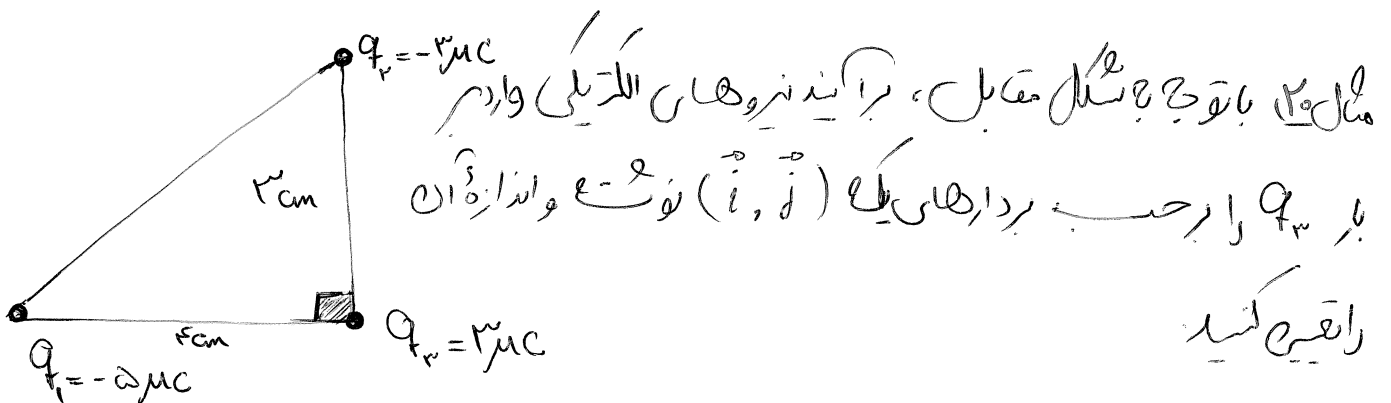 q₂ = -۳μC
مثال ۲۰) باتوجه به شکل مقابل، برآیند نیروهای الکتریکی وارد بر
۳cm
بار q₃ را برحسب بردارهای یکه (i⃗, j⃗) نوشته و اندازهٔ آن
را تعیین کنید
۴cm
q₃ = ۳μC
q₁ = -۵μC